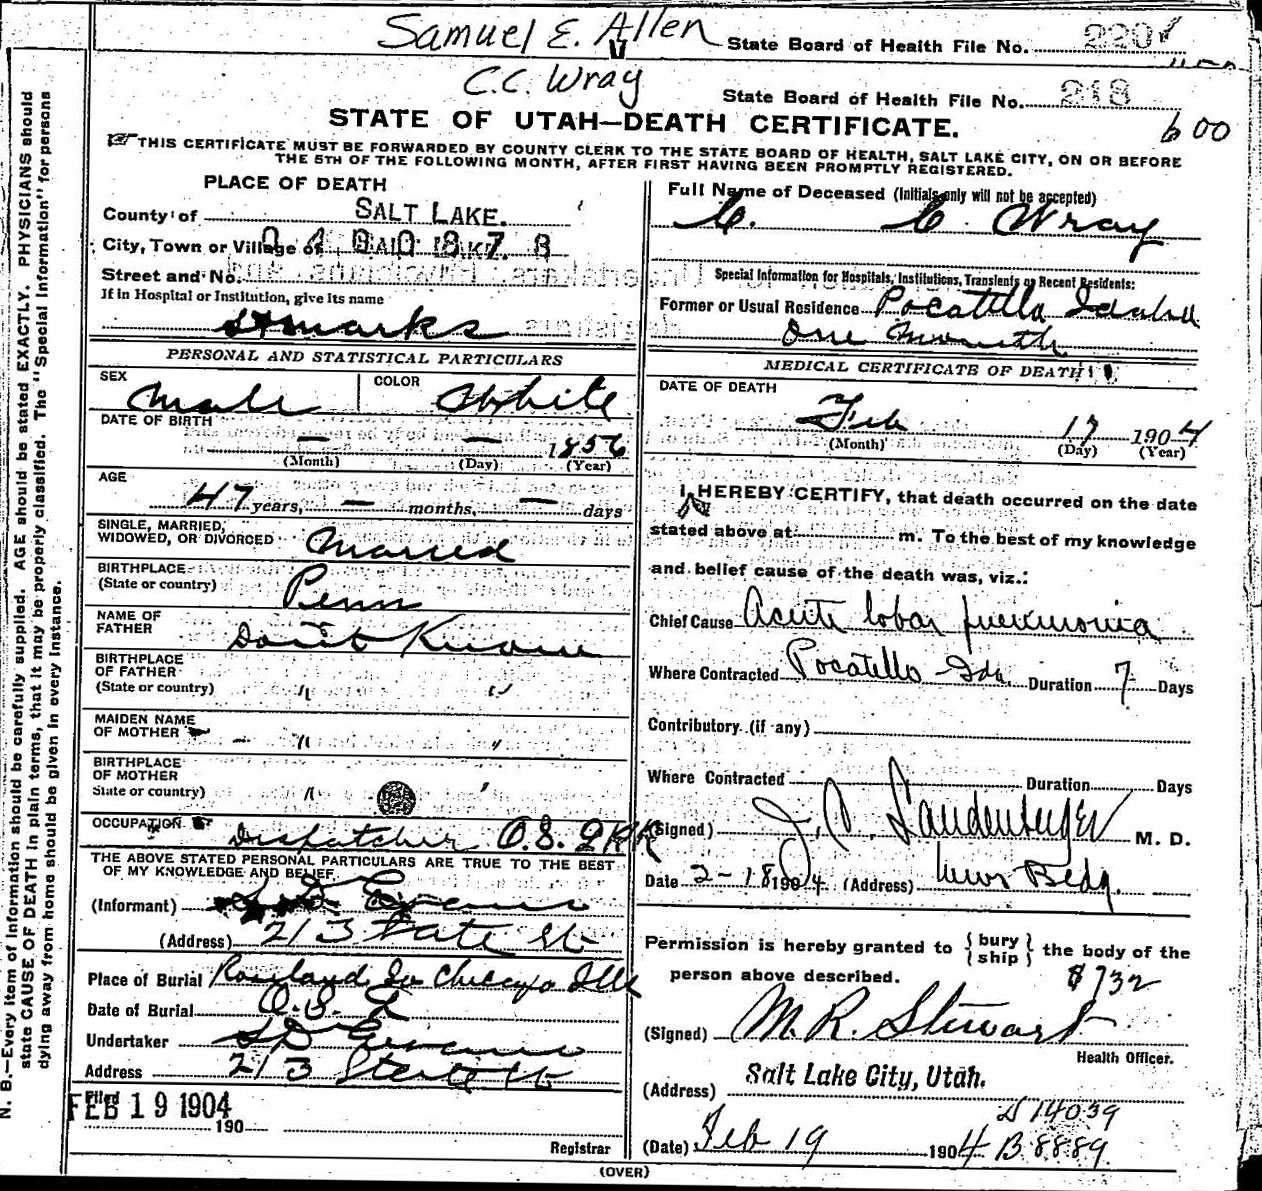 Samuel E. Allen State Board of Health File No. 220
C.C. Wray State Board of Health File No. 218
STATE OF UTAH—DEATH CERTIFICATE. 600
THIS CERTIFICATE MUST BE FORWARDED BY COUNTY CLERK TO THE STATE BOARD OF HEALTH, SALT LAKE CITY, ON OR BEFORE
THE 5TH OF THE FOLLOWING MONTH, AFTER FIRST HAVING BEEN PROMPTLY REGISTERED.
PLACE OF DEATH
County of SALT LAKE.
City, Town or Village of
Street and No.
If in Hospital or Institution, give its name
St marks
PERSONAL AND STATISTICAL PARTICULARS
SEX Male COLOR White
DATE OF BIRTH — — 1856
(Month) (Day) (Year)
AGE
47 years, — months, — days
SINGLE, MARRIED,
WIDOWED, OR DIVORCED Married
BIRTHPLACE
(State or country) Penn
NAME OF
FATHER Don't Know
BIRTHPLACE
OF FATHER
(State or country) " "
MAIDEN NAME
OF MOTHER " "
BIRTHPLACE
OF MOTHER
State or country) "
OCCUPATION Dispatcher O.S.L RR
THE ABOVE STATED PERSONAL PARTICULARS ARE TRUE TO THE BEST
OF MY KNOWLEDGE AND BELIEF
(Informant) S D Evans
(Address) 213 State St
Place of Burial Chicago Ills
Date of Burial O.S.L
Undertaker S D Evans
Address 213 State St
Filed
FEB 19 1904
190
Registrar
Full Name of Deceased (Initials only will not be accepted)
C. C Wray
Special Information for Hospitals, Institutions, Transients or Recent Residents:
Former or Usual Residence Pocatello Idaho
One Month
MEDICAL CERTIFICATE OF DEATH
DATE OF DEATH
Feb 17 1904
(Month) (Day) (Year)
I HEREBY CERTIFY, that death occurred on the date
stated above at m. To the best of my knowledge
and belief cause of the death was, viz.:
Chief Cause Acute lobar pneumonia
Where Contracted Pocatello Ida. Duration 7 Days
Contributory (if any)
Where Contracted Duration Days
(Signed) Landenberger M. D.
Date 2-18 1904. (Address) Bldg.
Permission is hereby granted to { bury } the body of the
{ ship }
person above described. $732
(Signed) M. R. Stewart
Health Officer.
(Address) Salt Lake City, Utah.
D 14039
(Date) Feb 19 1904. B 8889
(OVER)
N. B.—Every item of information should be carefully supplied. AGE should be stated EXACTLY. PHYSICIANS should
state CAUSE OF DEATH in plain terms, that it may be properly classified. The "Special Information" for persons
dying away from home should be given in every instance.